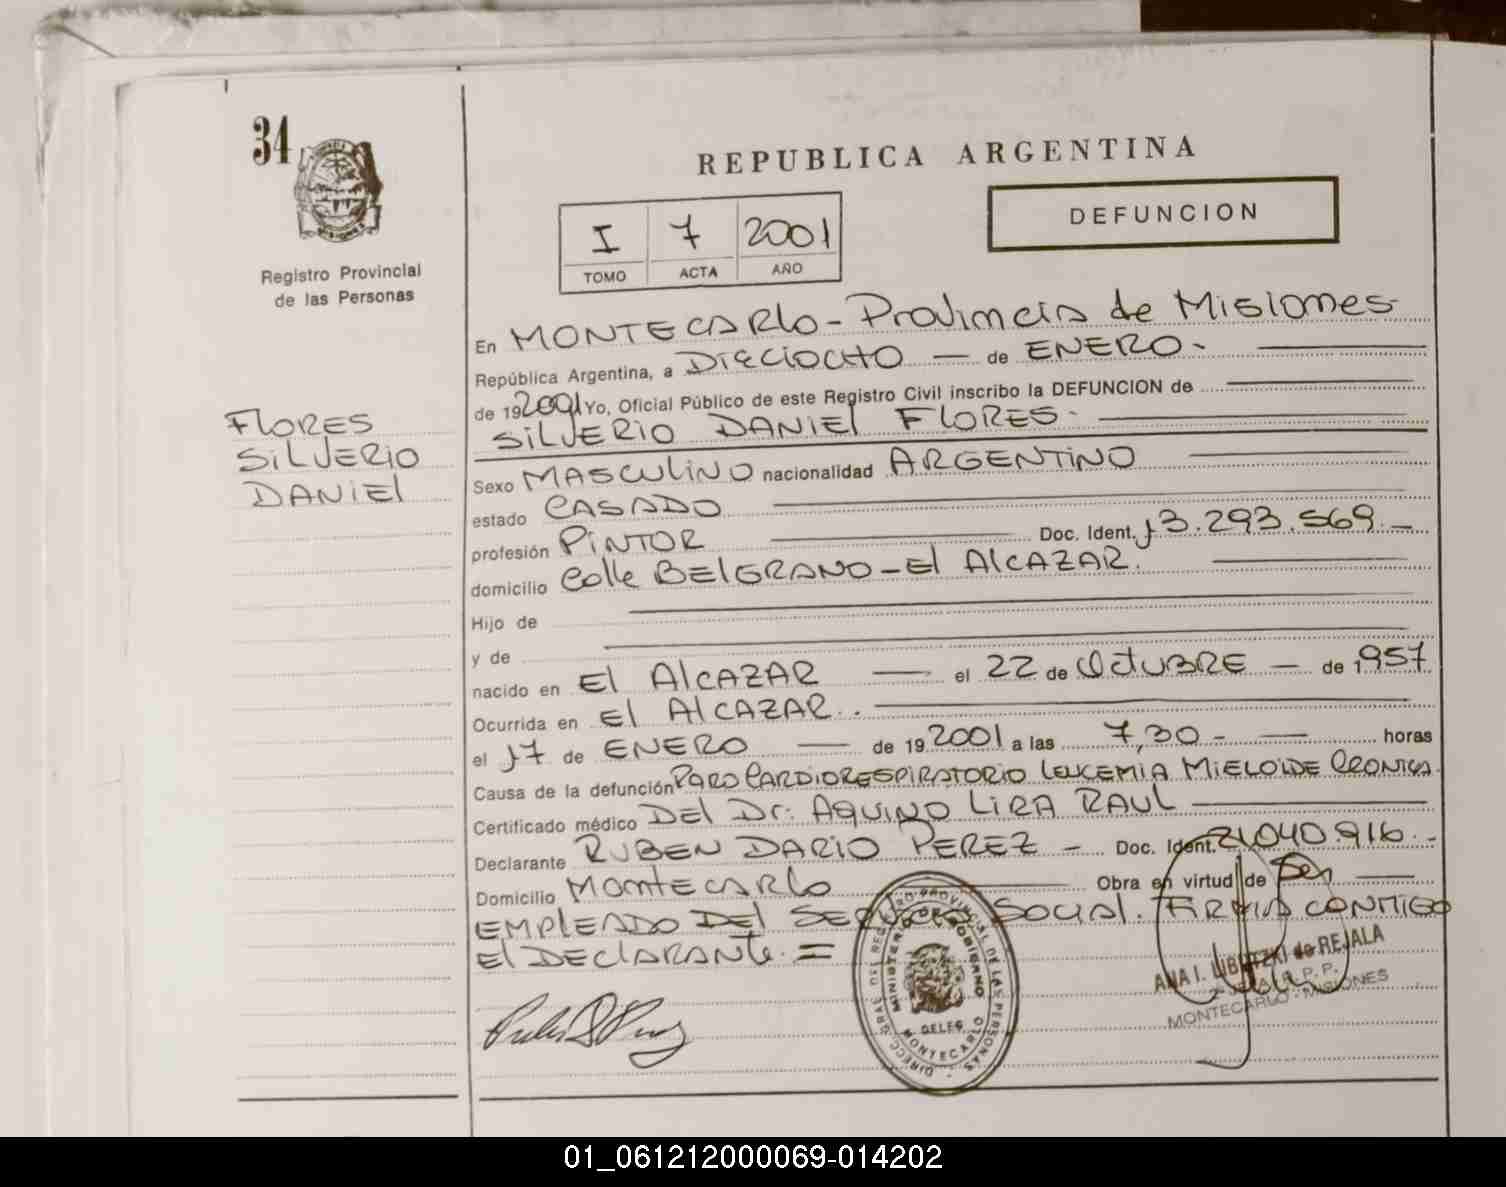 34
Registro Provincial
de las Personas
REPUBLICA ARGENTINA
DEFUNCION
I 7 2001
TOMO ACTA AÑO
FLORES
SILVERIO
DANIEL
En MONTECARLO - Provincia de Misiones
República Argentina, a DIECIOCHO — de ENERO -
de 192001 Yo, Oficial Público de este Registro Civil inscribo la DEFUNCION de
SILVERIO DANIEL FLORES -
Sexo MASCULINO nacionalidad ARGENTINO
estado CASADO
profesión PINTOR Doc. Ident. 13.293.569.-
domicilio Calle BELGRANO - El AlCAZAR.
Hijo de
y de
nacido en El AlCAZAR — el 22 de OCTUBRE — de 1957
Ocurrida en El AlCAZAR.
el 17 de ENERO — de 19 2001 a las 7,30 - — horas
Causa de la defunción PARO CARDIORESPIRATORIO LEUCEMIA MIELOIDE CRONICA
Certificado médico DEl Dr: AQUINO LIRA RAUL
Declarante RUBEN DARIO PEREZ - Doc. Ident. 21.040.916.-
Domicilio MONTECARLO Obra en virtud de Ser
EMPLEADO DEl SEGURO SOCIAL. FIRMA CONMIGO
El DEClARANTE. =
DIRECC. GRAL. DEL REGISTRO PROVINCIAL DE LAS PERSONAS
MINISTERIO DE GOBIERNO
DELEG.
MONTECARLO
ANA I. de REJALA
R. P. P.
MONTECARLO - MISIONES
01_061212000069-014202